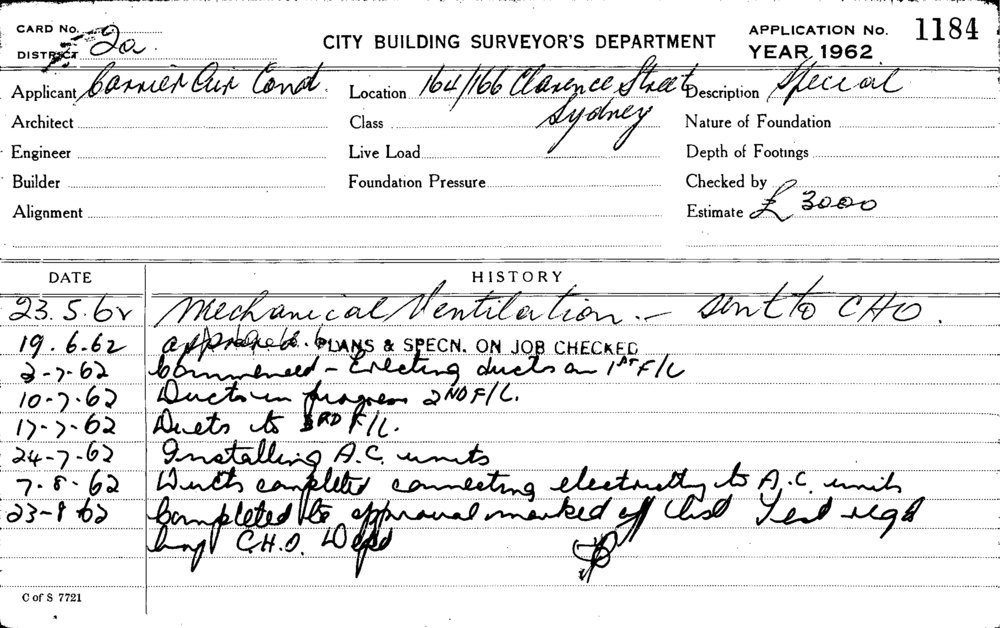 CARD No.
DISTRICT 2a.
CITY BUILDING SURVEYOR'S DEPARTMENT
APPLICATION No. 1184
YEAR 1962
Applicant Carrier Air Cond. Location 164/166 Clarence Street Sydney Description Special
Architect Class Nature of Foundation
Engineer Live Load Depth of Footings
Builder Foundation Pressure Checked by
Alignment Estimate £ 3000
DATE HISTORY
23.5.62 Mechanical Ventilation - sent to CHO.
19.6.62 approved PLANS & SPECN. ON JOB CHECKED
2-7-62 Commenced - Erecting ducts on 1ST F/L
10-7-62 Ducts in progress 2ND F/L.
17-7-62 Ducts to 3RD F/L.
24-7-62 Installing A.C. units
7-8-62 Ducts completed connecting electricity to A.C. units
23-8-62 Completed to approval marked off Test reqd
C.H.O. Dept
C of S 7721